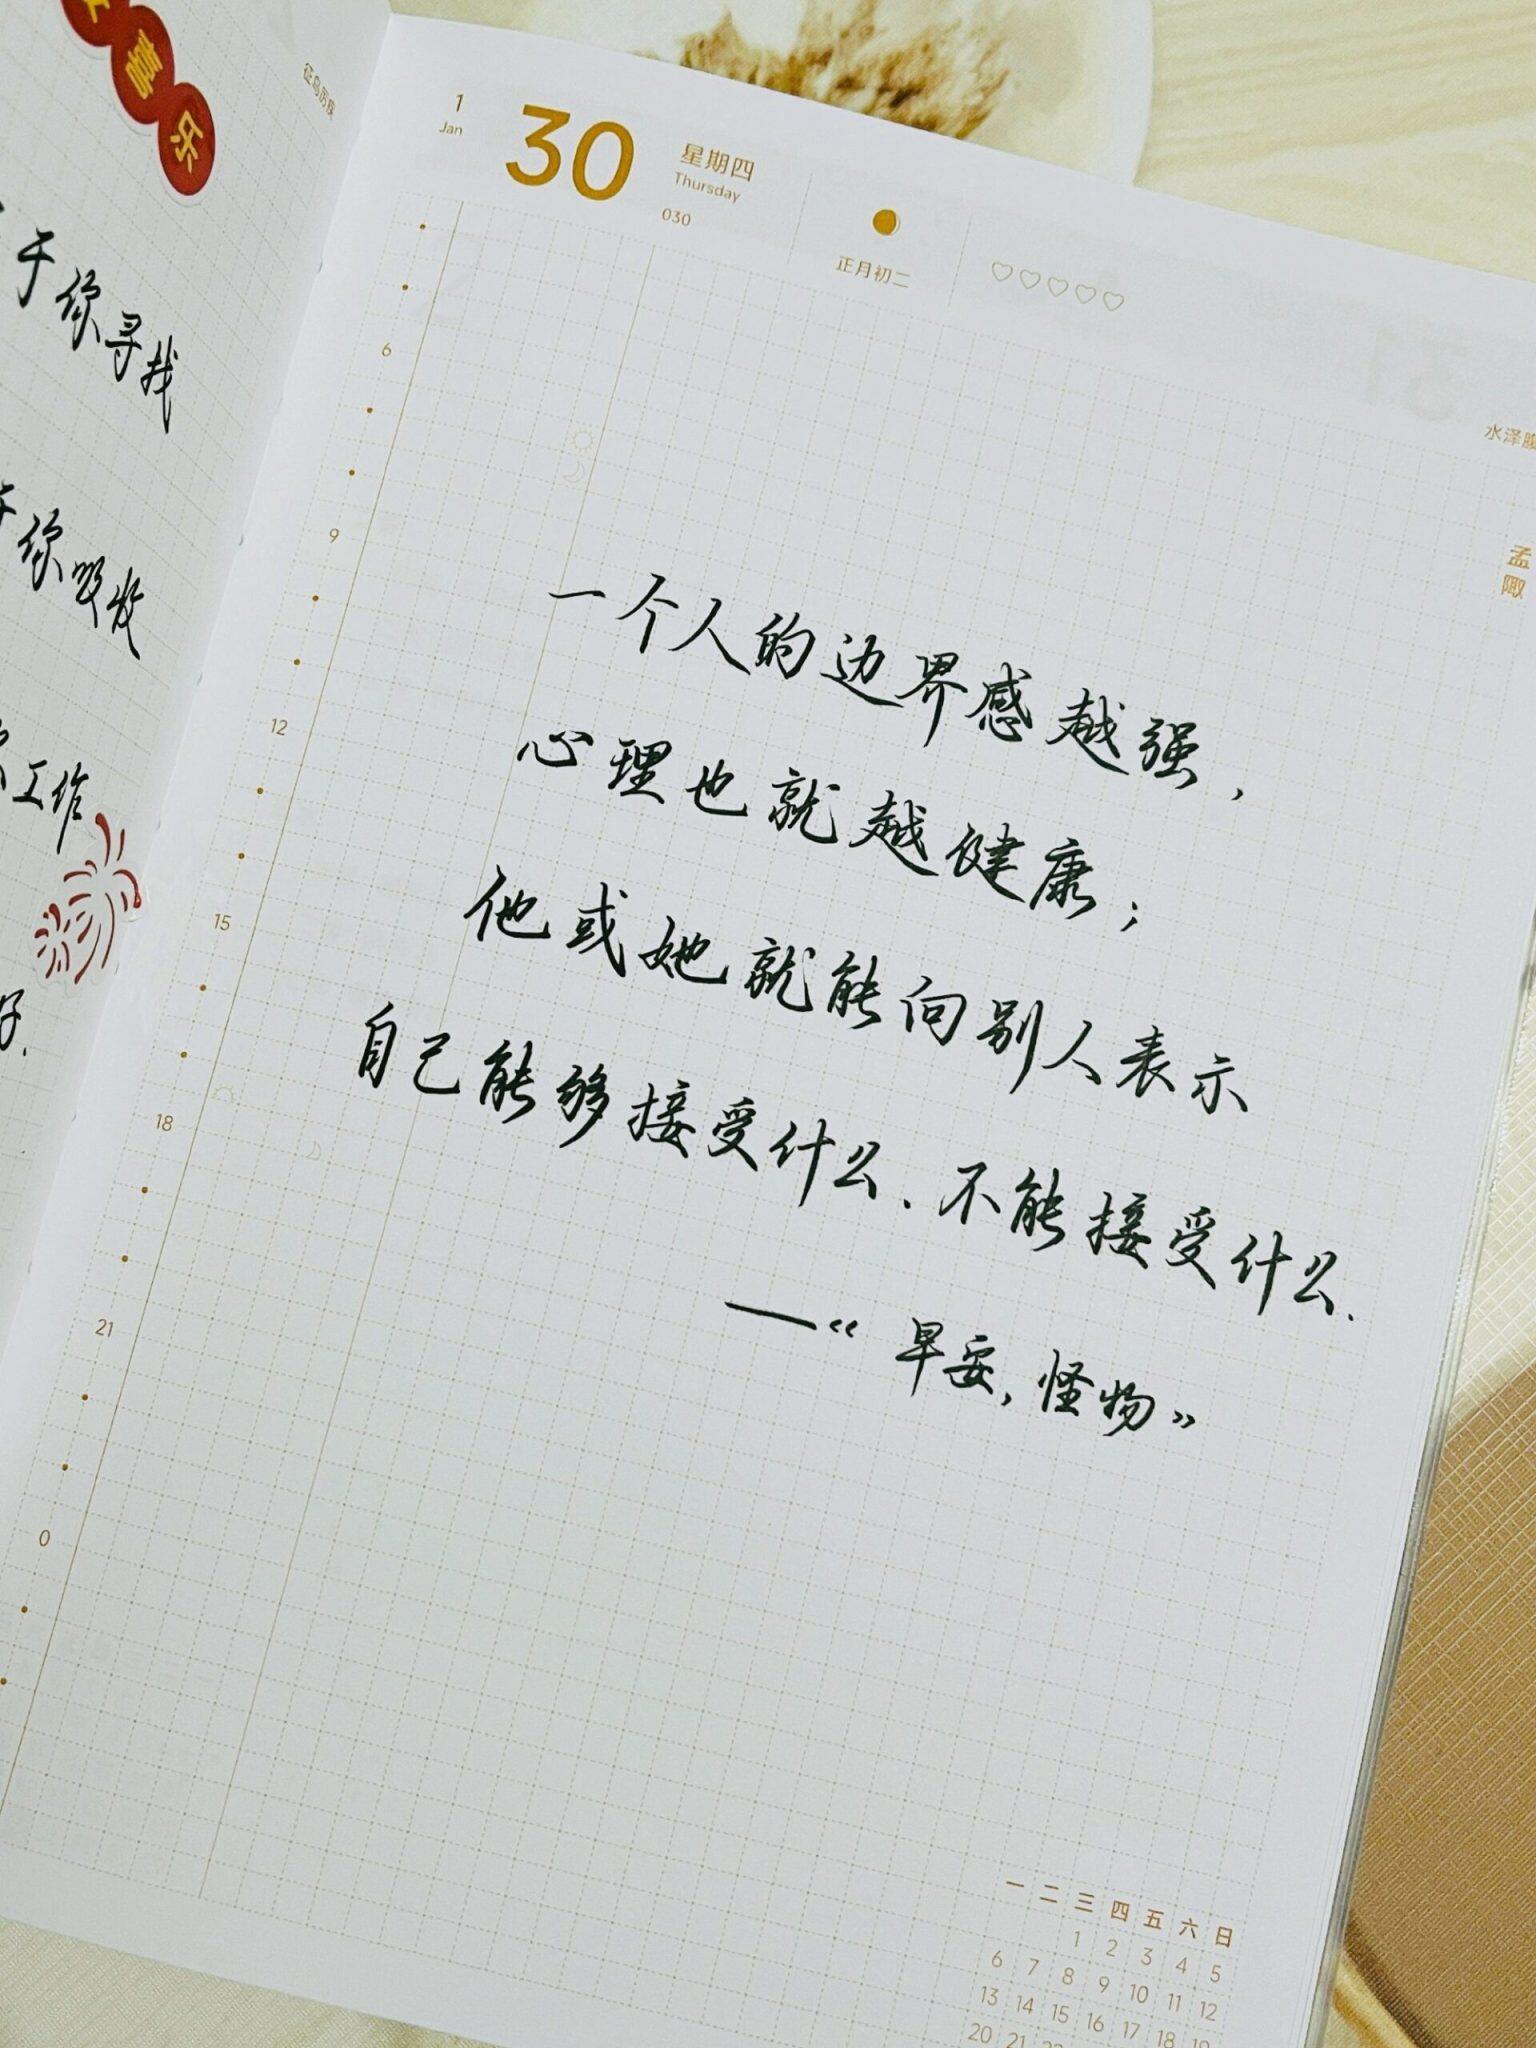 喜
乐
于你寻找
你吸收
工作
好.
1
Jan
30
星期四
Thursday
030
正月初二
水泽腹
孟
陬
6
9
12
15
18
21
0
一个人的边界感越强,
心理也就越健康;
他或她就能向别人表示
自己能够接受什么.不能接受什么.
——《早安,怪物》
一 二 三 四 五 六 日
1 2 3 4 5
6 7 8 9 10 11 12
13 14 15 16 17 18 19
20 21